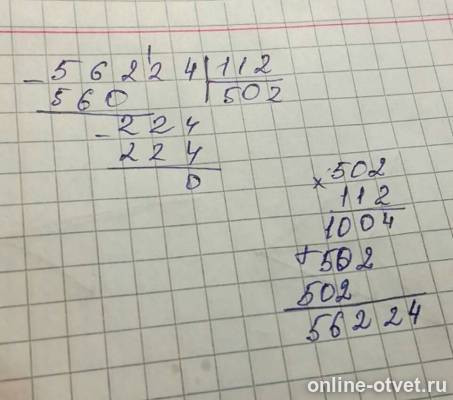 - 5 6 2 2 4 | 112
5 6 0 | 502
- 2 2 4
2 2 4
0
× 502
112
1004
+ 502
502
56224
online-otvet.ru